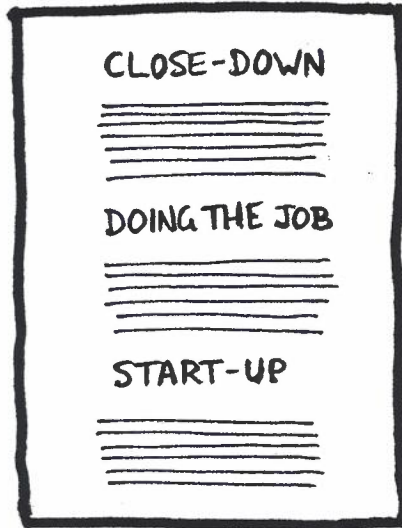 CLOSE-DOWN
DOING THE JOB
START-UP